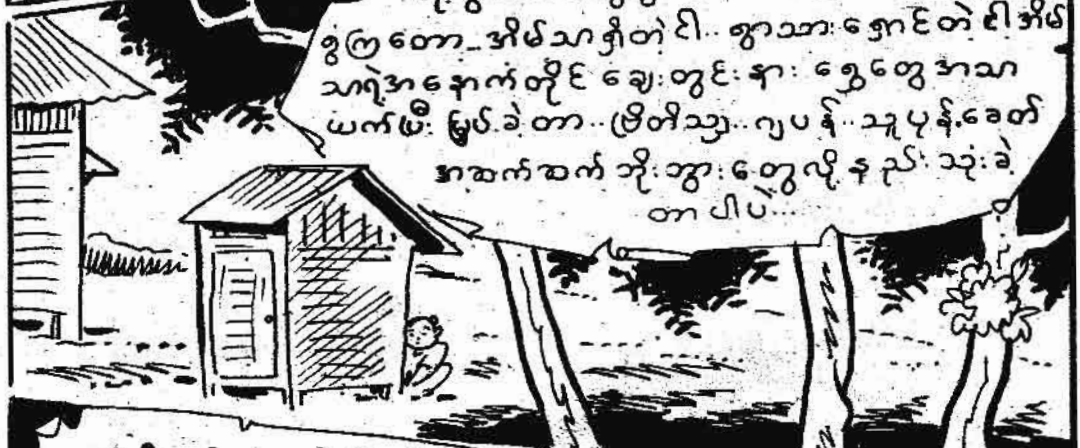 ခွဲကြတော့.. အိမ်သာရှိတဲ့ ငါ.. ရွာသားရှောင်တဲ့ ငါ့အိမ်
သာရဲ့အနောက်တိုင် ချေးတွင်းနား ရွှေတွေ အသာ
ယက်ပြီး မြှုပ်ခဲ့တာ.. ဗြိတိသျှ.. ဂျပန်.. သူပုန်.ခေတ်
အဆက်ဆက် ဘိုးဘွားတွေလို့ နည်း သုံးခဲ့
တာပါပဲ...